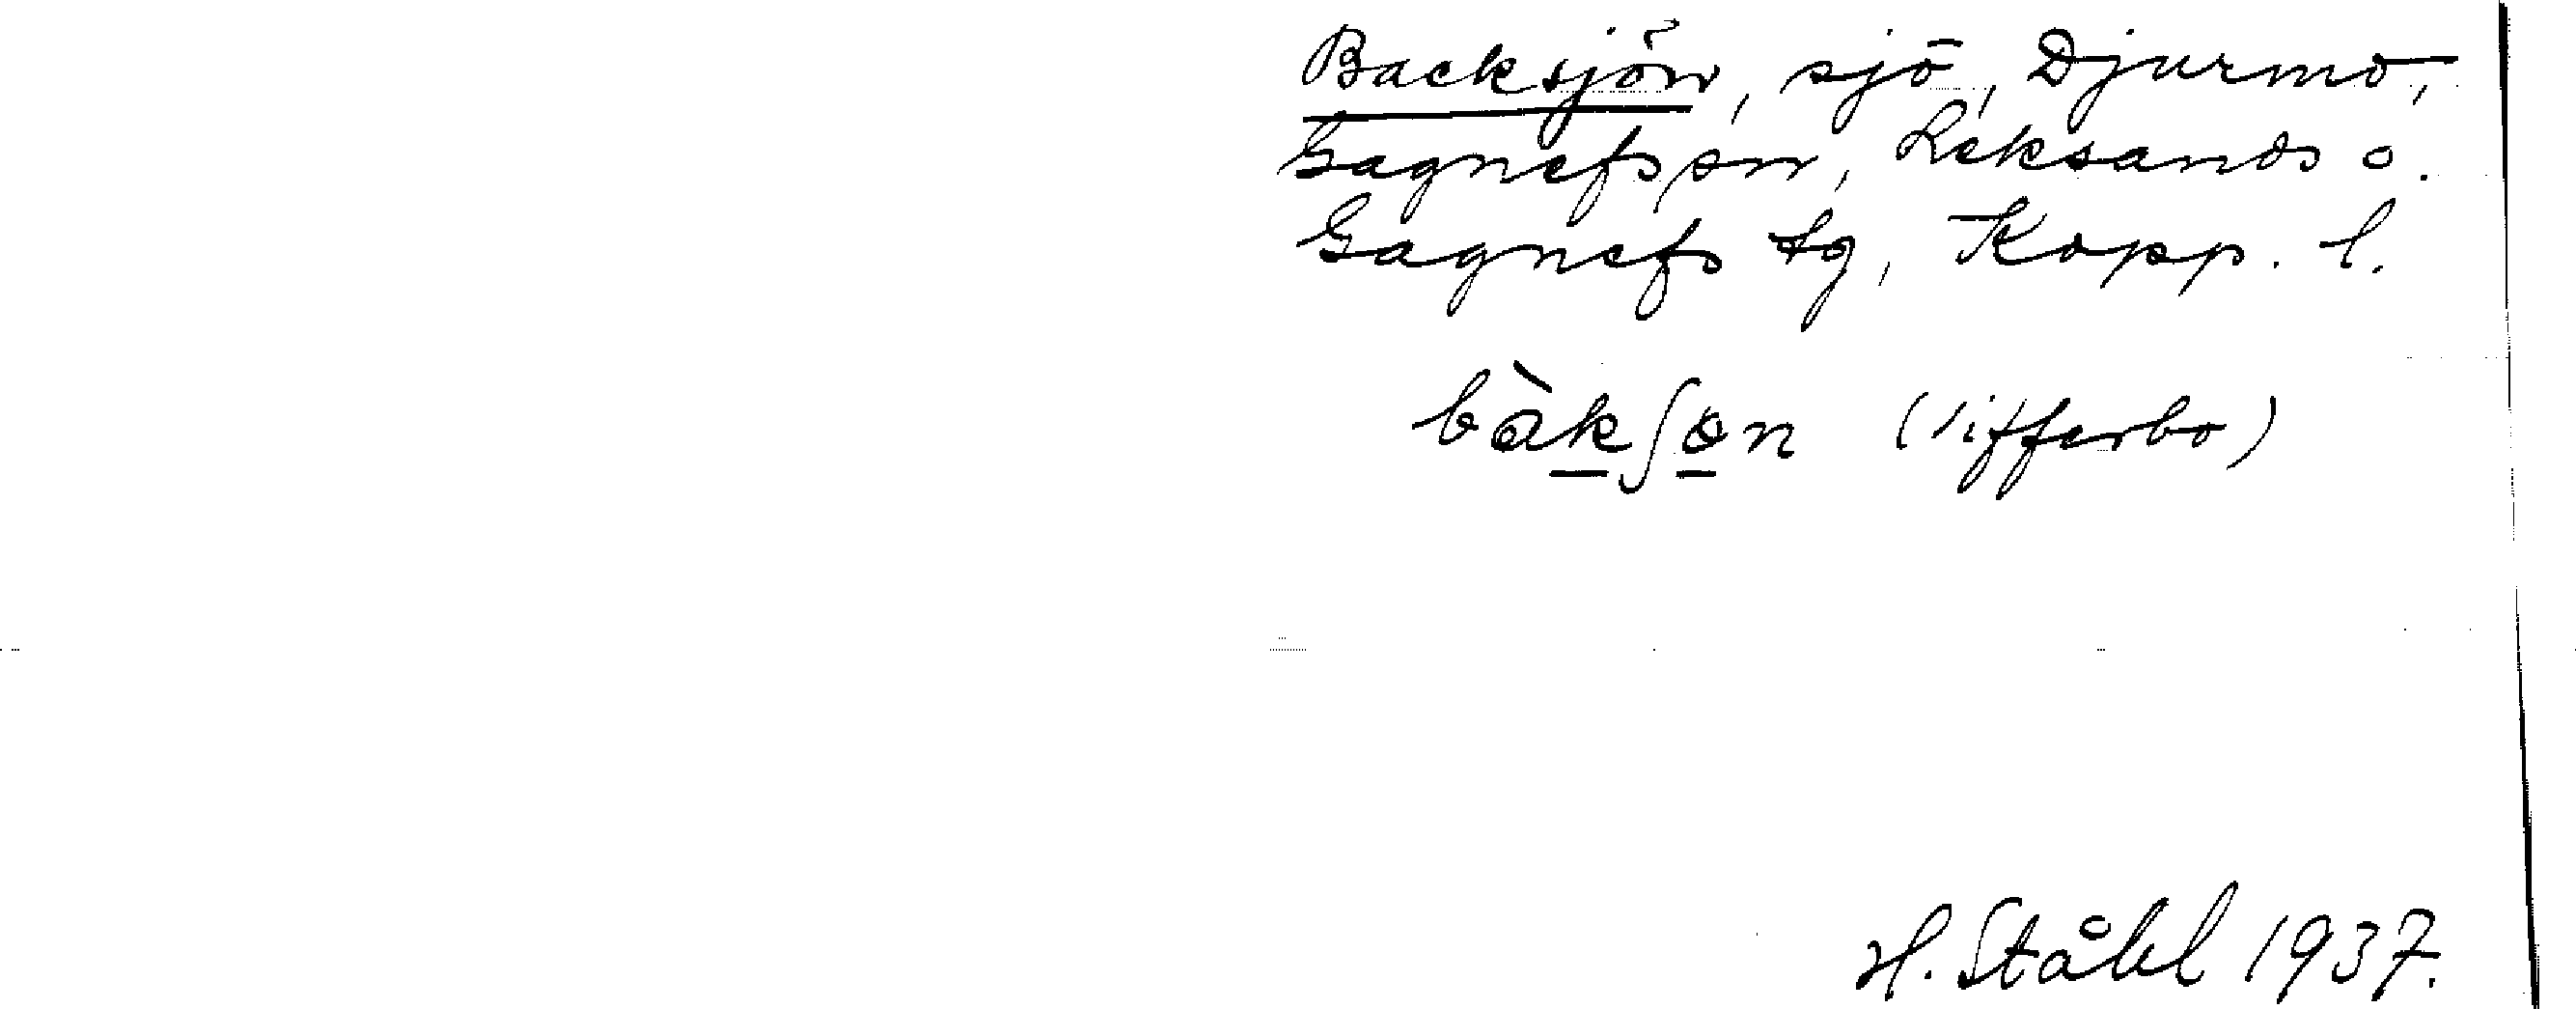 Backsjön, sjö, Djurmo,
Gagnefs sn, Leksands o.
Gagnefs tg, Kopp. l.
bàkʃøn (Sifferbo)
H. Ståhl 1937.